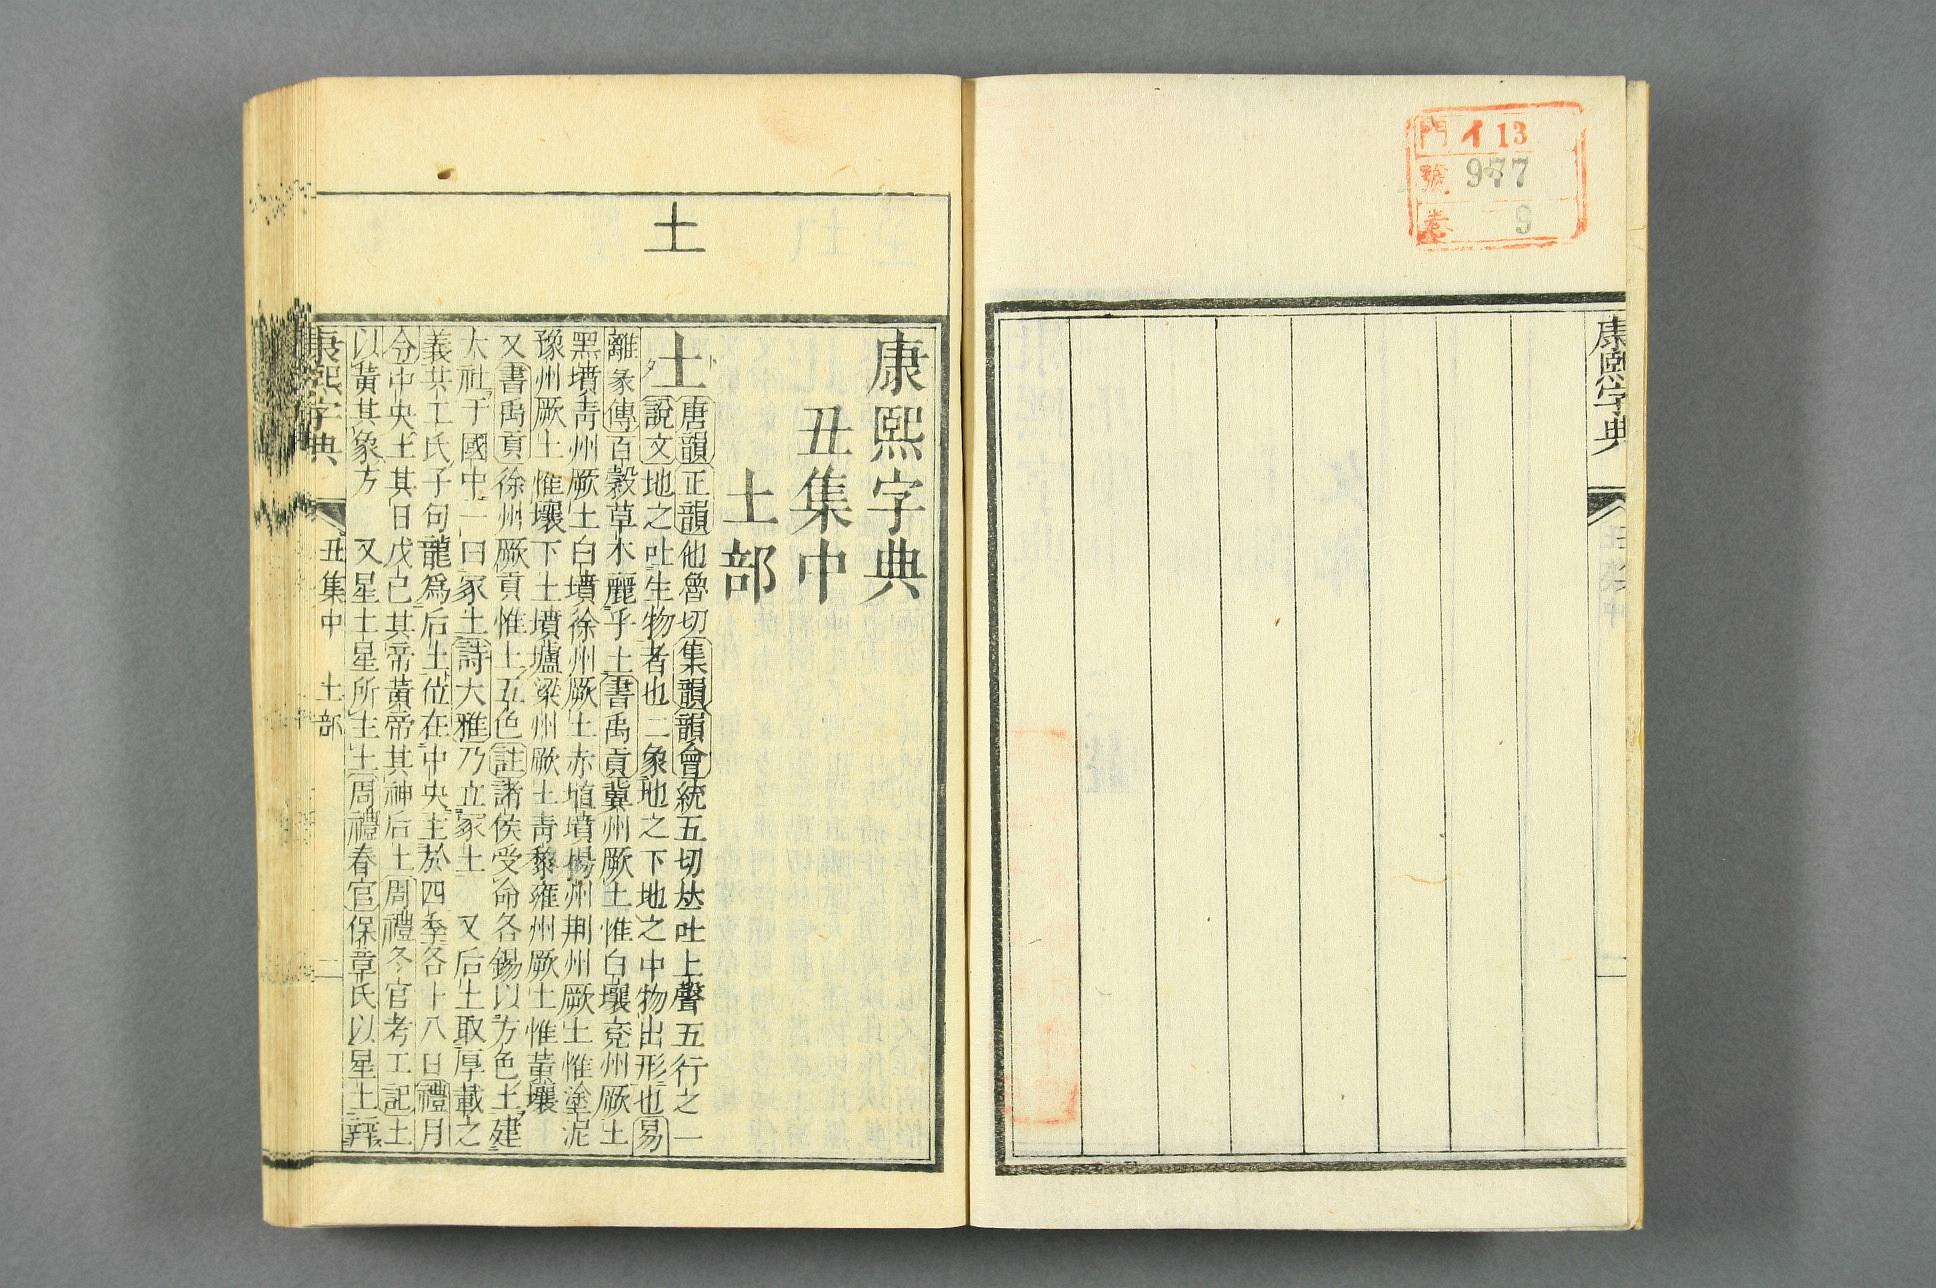 門 イ 13
號 977
卷 9
康熙字典
土
康熙字典
丑集中
土部
土
唐韻正韻他魯切集韻韻會統五切𠀤吐上聲五行之一
說文地之吐生物者也二象地之下地之中物出形也易
離彖傳百穀草木麗乎土書禹貢冀州厥土惟白壤兗州厥土
黑墳靑州厥土白墳徐州厥土赤埴墳揚州荆州厥土惟塗泥
豫州厥土惟壤下土墳壚梁州厥土靑黎雍州厥土惟黃壤
又書禹貢徐州厥貢惟土五色註諸侯受命各錫以方色土建
大社于國中一曰冢土詩大雅乃立冢土 又后土取厚載之
義共工氏子句龍爲后土位在中央主於四季各十八日禮月
令中央土其日戊已其帝黃帝其神后土周禮冬官考工記土
以黃其象方 又星土星所主土周禮春官保章氏以星土辨
康熙字典 丑集中 土部 二